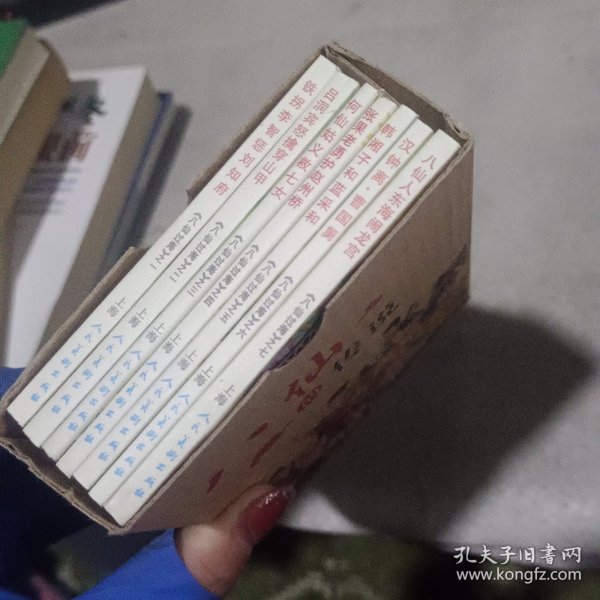 铁拐李智惩刘知府
(八仙过海之一)
上海
人民美术出版社
吕洞宾怒擒穿山甲
(八仙过海之二)
上海
人民美术出版社
何仙姑义救七女
(八仙过海之三)
上海
人民美术出版社
张果老勇护赵州桥
(八仙过海之四)
上海
人民美术出版社
韩湘子和蓝采和
(八仙过海之五)
上海
人民美术出版社
汉钟离·曹国舅
(八仙过海之六)
上海
人民美术出版社
八仙人东海闹龙宫
(八仙过海之七)
上海
人民美术出版社
仙
孔夫子旧书网
www.kongfz.com